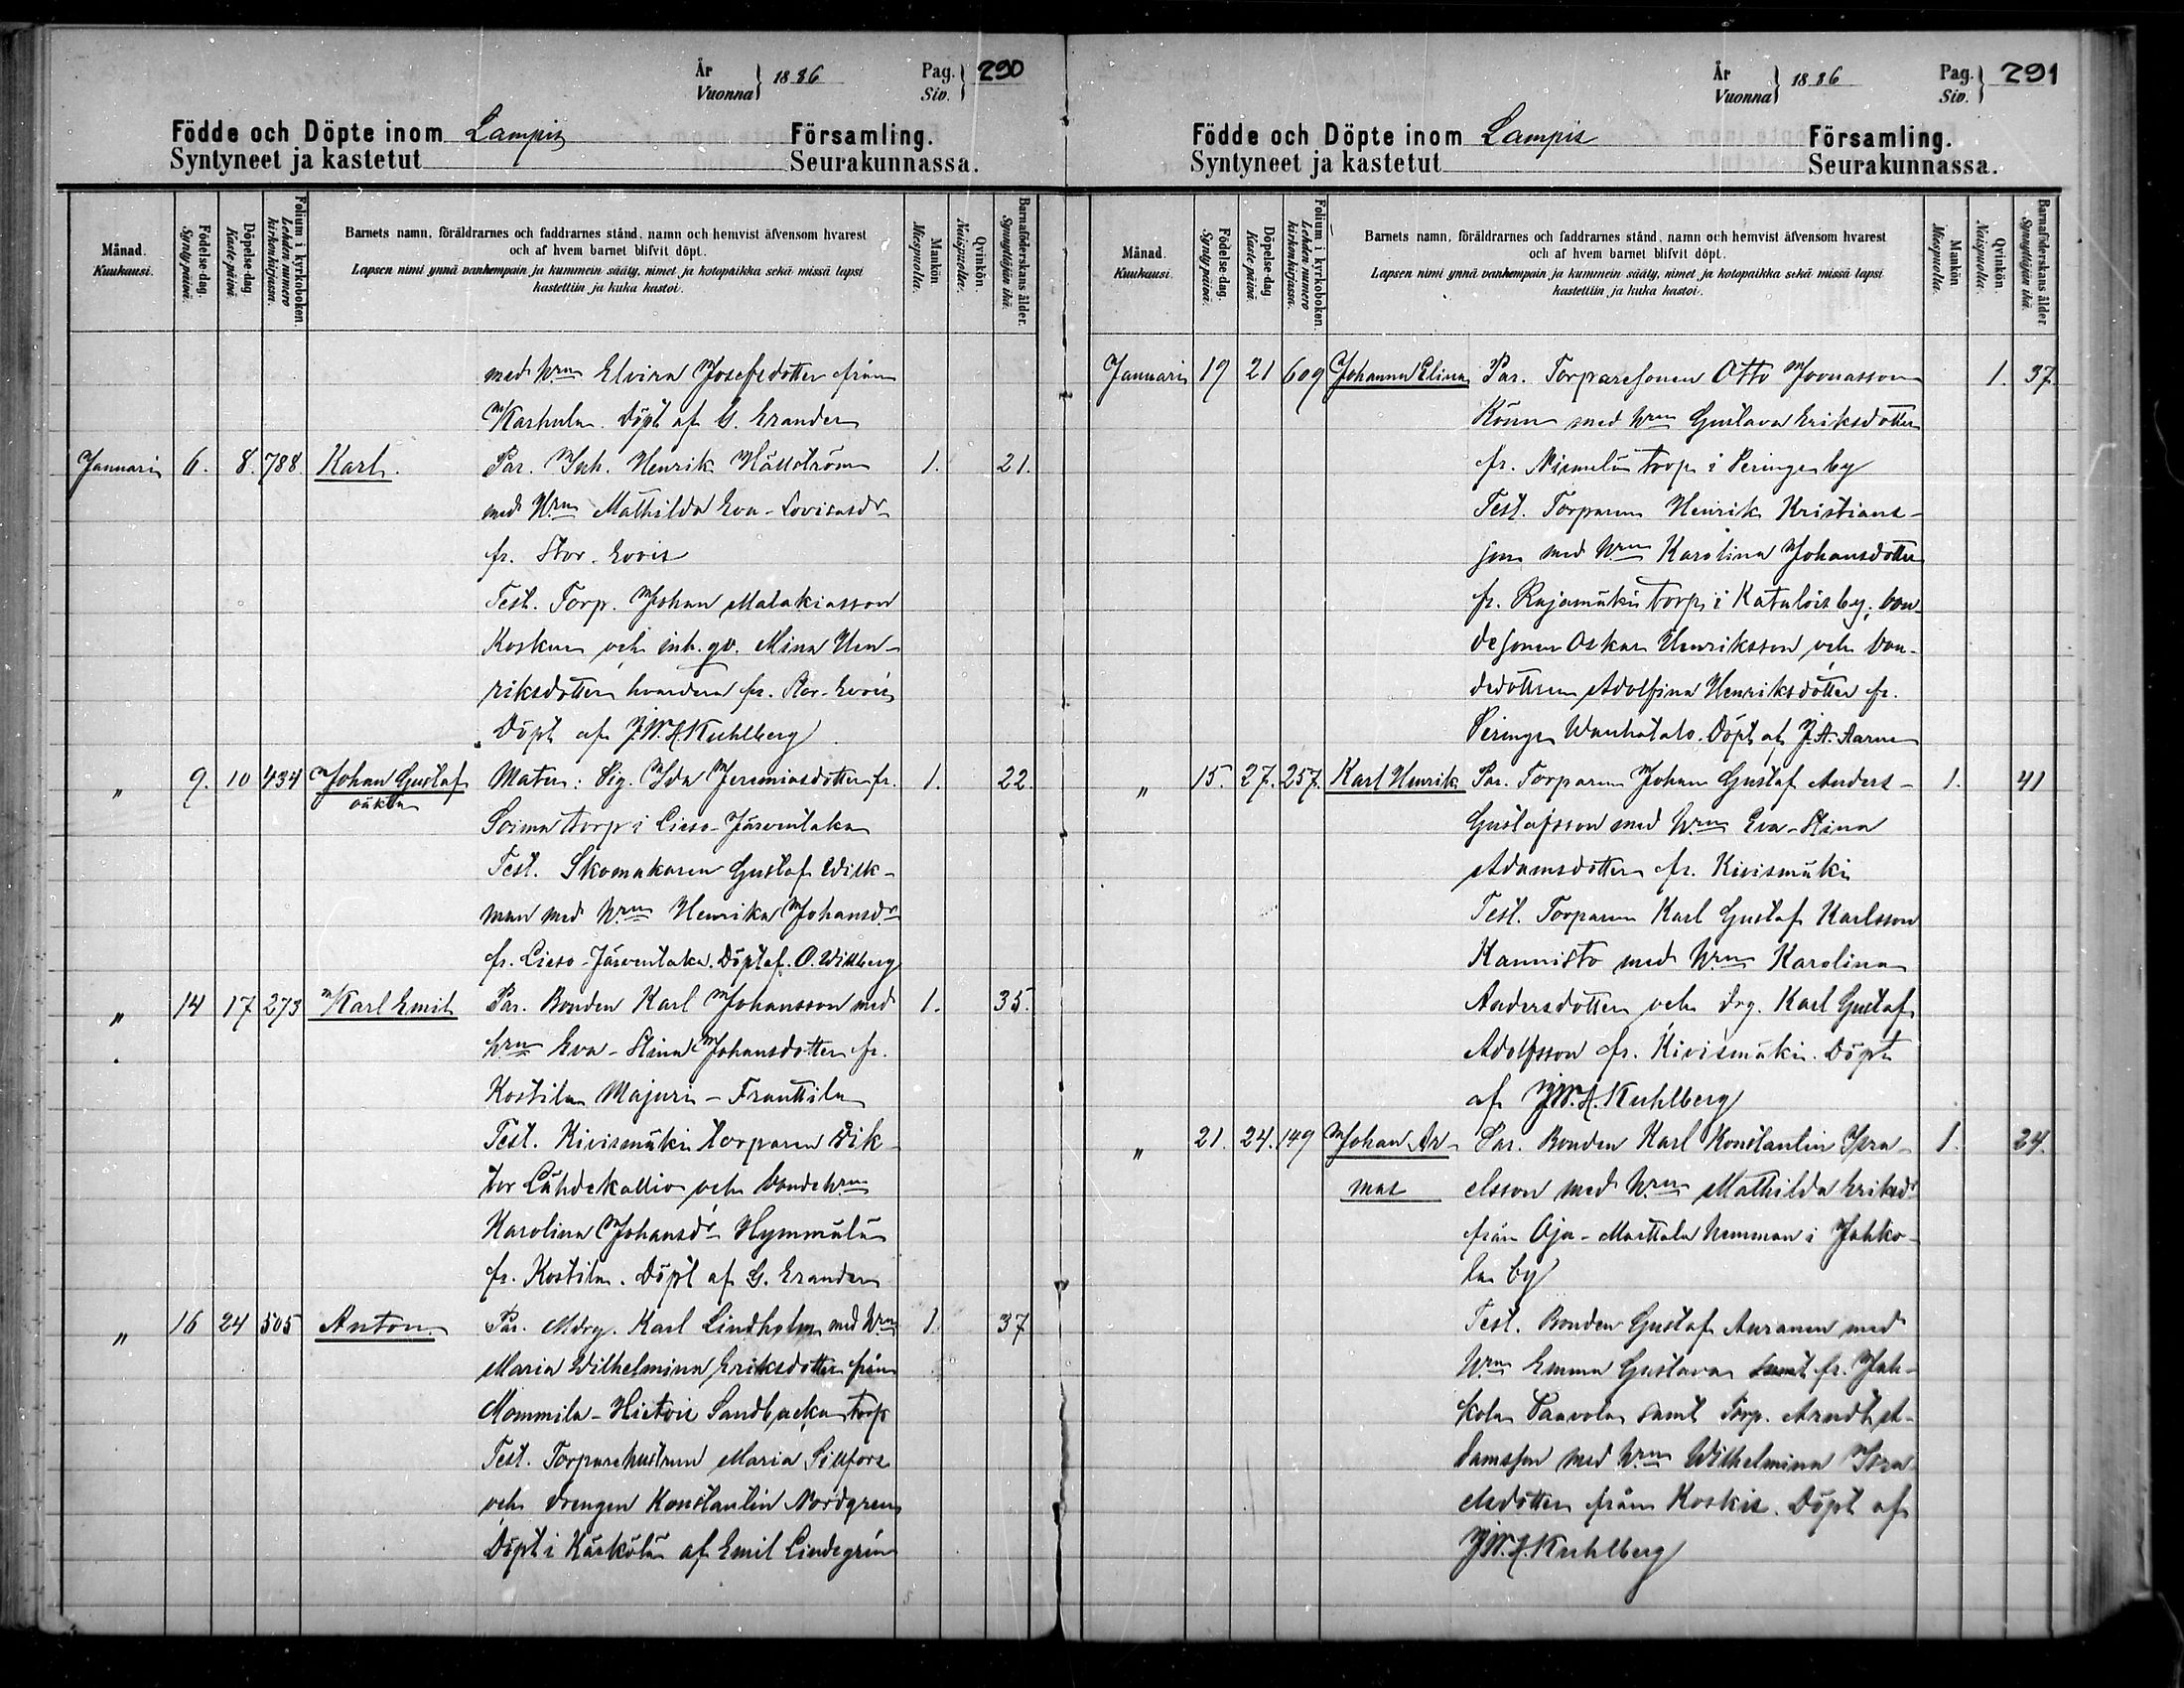 År
Vuonna } 1886 Pag.
Siv. } 290
Födde och Döpte inom Lampis Församling.
Syntyneet ja kastetut Seurakunnassa.
Månad.
Kuukausi.
Födelse-dag.
Synty päivä.
Döpelse-dag.
Kaste päivä.
Folium i kyrkoboken.
Lehden numero
kirkonkirjassa.
Barnets namn, föräldrarnes och faddrarnes stånd, namn och hemvist äfvensom hvarest
och af hvem barnet blifvit döpt.
Lapsen nimi ynnä vanhempain ja kummein sääty, nimet ja kotopaikka sekä missä lapsi
kastettiin ja kuka kastoi.
Mankön.
Miespuolia.
Qvinkön.
Naispuolia.
Barnaföderskans ålder.
Synnyttäjän ikä.
med hrun Elvira Josefsdotter från
Karhula. Döpt af G. Erander
Januari 6. 8. 788 Karl. Par. Inh. Henrik Hällström 1. 21.
med Hrun Mathilda Eva-Lovisasdr
fr. Stor-Evois
Test. Torp. Johan Malakiasson
Koskue och inh. qv. Mina Hen-
riksdotter hvardera fr. Stor-Evois
Döpt af J.W.A. Kuhlberg
" 9. 10 434 Johan Gustaf Mater: Pig. Ida Jeremiasdotter fr. 1. 22.
oäkta
Soima torp i Lieso-Järventaka
Test. Skomakaren Gustaf Wilk-
man med hrun Henrika Johansdr
fr. Lieso-Järventaka. Döpt af O. Willberg
" 14 17 273 Karl Emil Par. Bonden Karl Johansson med 1. 35.
hrun Eva-Stina Johansdotter fr.
Kostila Majuri-Franttila
Test. Kivismäki torparen Wik-
tor Lähdekallio och bondehrun
Karolina Johansdr Hymmälä
fr. Kostila. Döpt af G. Erander
" 16 24 505 Anton. Par. Mdrg. Karl Lindholm med hrun 1. 37
Maria Wilhelmina Eriksdotter från
Mommila-Hietois Sandbacka torp
Test. Torparehustrun Maria Sillfors
och drengen Konstantin Nordgren
Döpt i Kärkölä af Emil Lindegrén
År
Vuonna } 1886 Pag.
Siv. } 291
Födde och Döpte inom Lampis Församling.
Syntyneet ja kastetut Seurakunnassa.
Månad.
Kuukausi.
Födelse-dag.
Synty päivä.
Döpelse-dag.
Kaste päivä.
Folium i kyrkoboken.
Lehden numero
kirkonkirjassa.
Barnets namn, föräldrarnes och faddrarnes stånd, namn och hemvist äfvensom hvarest
och af hvem barnet blifvit döpt.
Lapsen nimi ynnä vanhempain ja kummein sääty, nimet ja kotopaikka sekä missä lapsi
kastettiin ja kuka kastoi.
Mankön.
Miespuolia.
Qvinkön.
Naispuolia.
Barnaföderskans ålder.
Synnyttäjän ikä.
Januari 19 21 609 Johanna Elina Par. Torparesonen Otto Joonasson 1. 37
med hrun Gustava Eriksdotter
fr. torp i Peringe by
Test. Torparen Henrik Kristians-
son med hrun Karolina Johansdotter
fr. Rajamäki torp i Katalois by, bon-
desonen Oskar Henriksson och bon-
dedottren Adolfina Henriksdotter fr.
Peringe Wanhatalo. Döpt af J.A. Aarne
" 15. 27. 257. Karl Henrik Par. Torparen Johan Gustaf Anders- 1. 41
Gustafsson med hrun Eva-Stina
Adamsdotter fr. Kivismäki
Test. Torparen Karl Gustaf Karlsson
Kannisto med hrun Karolina
Andersdotter och drg. Karl Gustaf
Adolfsson fr. Kivismäki. Döpt
af J.W.A. Kuhlberg
" 21. 24. 149 Johan Ar- Par. Bonden Karl Konstantin Isra- 1. 24.
mas elsson med hrun Mathilda Eriksdr
från Oja-Marttala hemman i Jahko-
la by
Test. Bonden Gustaf Auranen med
hrun Emma Gustava fr. Jah-
kola Paavola samt Torp. Arndt A-
damsson med hrun Wilhelmina Isra-
elsdotter från Koskis. Döpt af
J.W.A. Kuhlberg